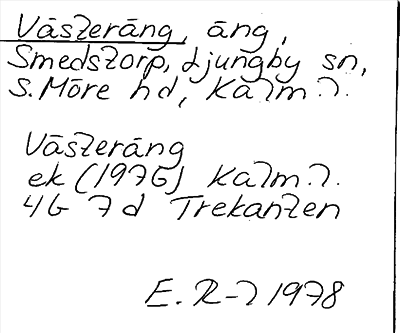 Västeräng, äng,
Smedstorp, Ljungby sn,
S. Möre hd, Kalm. l.
Västeräng
ek (1976) Kalm. l.
4G 7d Trekanten
E. R-l 1978